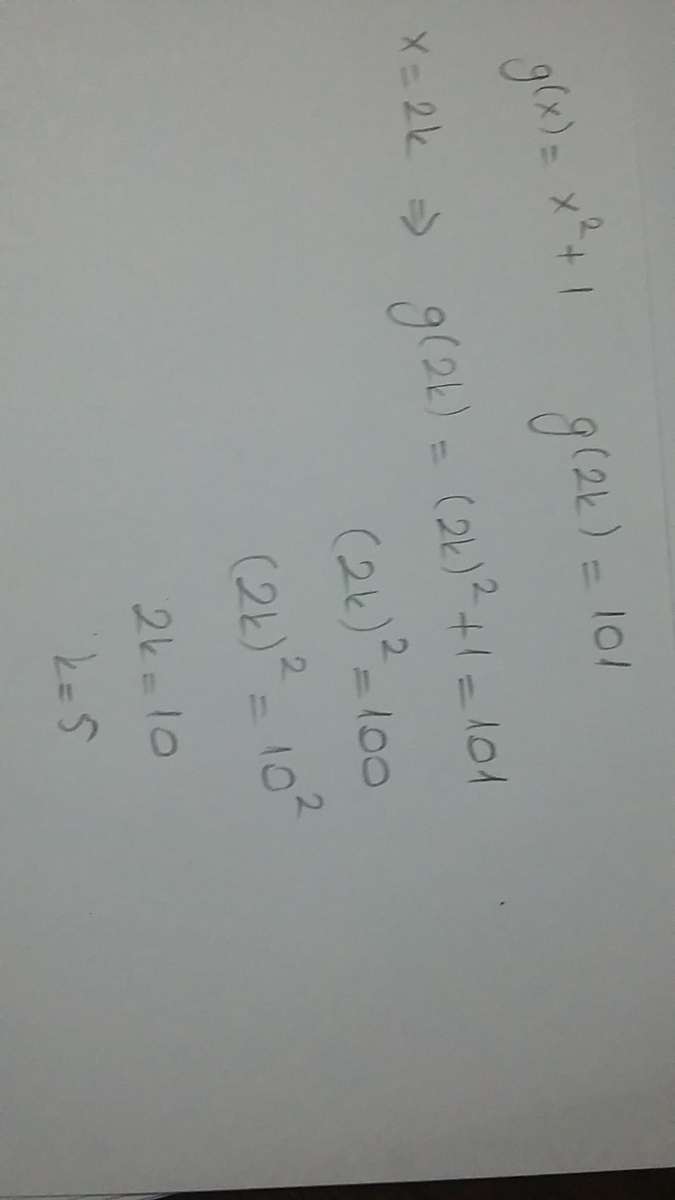 g(x) = x² + 1 g(2k) = 101
x = 2k ⇒ g(2k) = (2k)² + 1 = 101
(2k)² = 100
(2k)² = 10²
2k = 10
k = 5